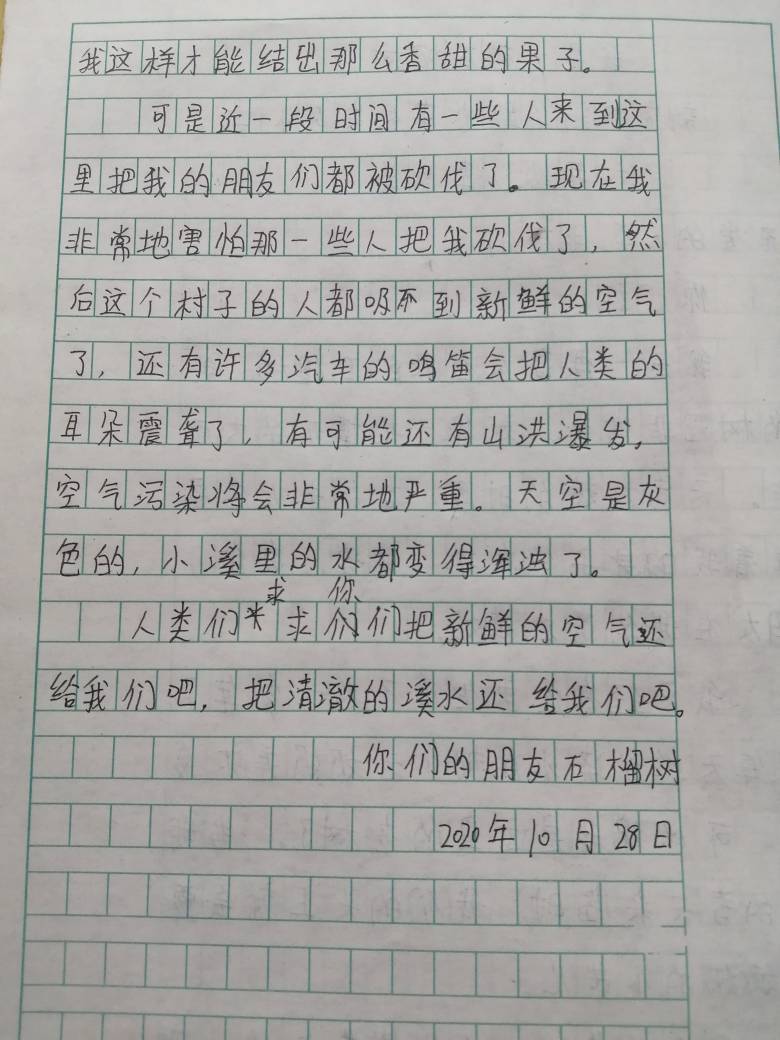 我这样才能结出那么香甜的果子。
可是近一段时间有一些人来到这
里把我的朋友们都被砍伐了。现在我
非常地害怕那一些人把我砍伐了，然
后这个村子的人都吸不到新鲜的空气
了，还有许多汽车的鸣笛会把人类的
耳朵震聋了，有可能还有山洪瀑发，
空气污染将会非常地严重。天空是灰
色的，小溪里的水都变得浑浊了。
求 你
人类们求求你们把新鲜的空气还
给我们吧，把清澈的溪水还给我们吧。
你们的朋友石榴树
2020年10月28日